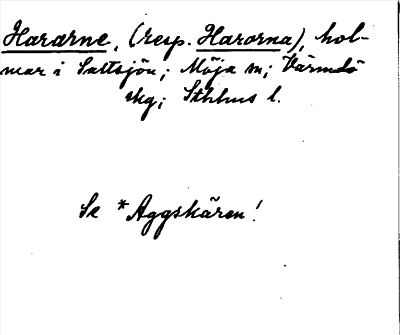 Hararne, (resp. Harorna), hol-
mar i Saltsjön; Möja sn; Värmdö
skg; Sthlms l.
Se *Äggskären!